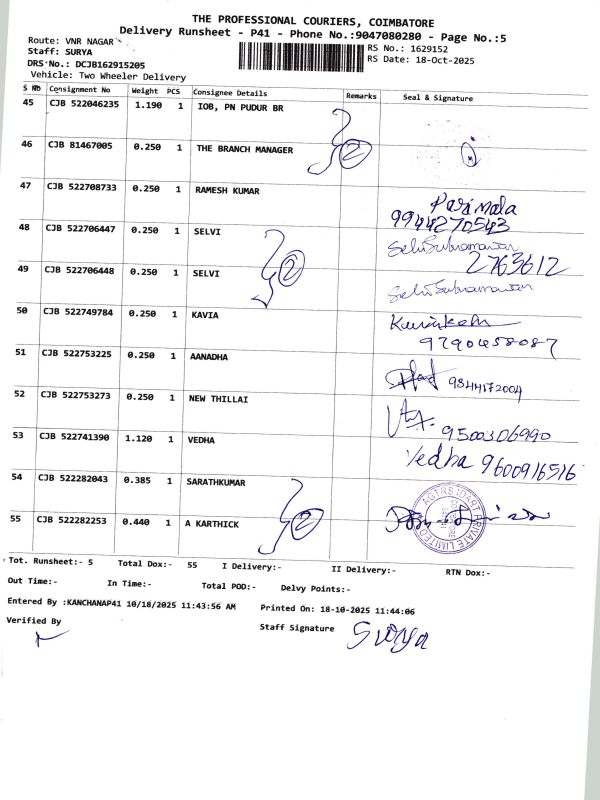 THE PROFESSIONAL COURIERS, COIMBATORE
Delivery Runsheet - P41 - Phone No.:9047080280 - Page No.:5
Route: VNR NAGAR
RS No.: 1629152
Staff: SURYA
RS Date: 18-Oct-2025
DRS No.: DCJB162915205
Vehicle: Two Wheeler Delivery
S NO Consignment No Weight PCS Consignee Details Remarks Seal & Signature
45 CJB 522046235 1.190 1 IOB, PN PUDUR BR
46 CJB 81467005 0.250 1 THE BRANCH MANAGER 2
47 CJB 522708733 0.250 1 RAMESH KUMAR Parimala
9944270543
48 CJB 522706447 0.250 1 SELVI Selvi Subramanian
2763612
49 CJB 522706448 0.250 1 SELVI 2 Selvi Subramanian
50 CJB 522749784 0.250 1 KAVIA
9790458087
51 CJB 522753225 0.250 1 AANADHA 9844172004
52 CJB 522753273 0.250 1 NEW THILLAI 9500306990
53 CJB 522741390 1.120 1 VEDHA Vedha 9600916516
54 CJB 522282043 0.385 1 SARATHKUMAR
55 CJB 522282253 0.440 1 A KARTHICK 2
PRIVATE LIMITED
Tot. Runsheet:- 5 Total Dox:- 55 I Delivery:- II Delivery:- RTN Dox:-
Out Time:- In Time:- Total POD:- Delvy Points:-
Entered By :KANCHANAP41 10/18/2025 11:43:56 AM Printed On: 18-10-2025 11:44:06
Verified By Staff Signature Surya